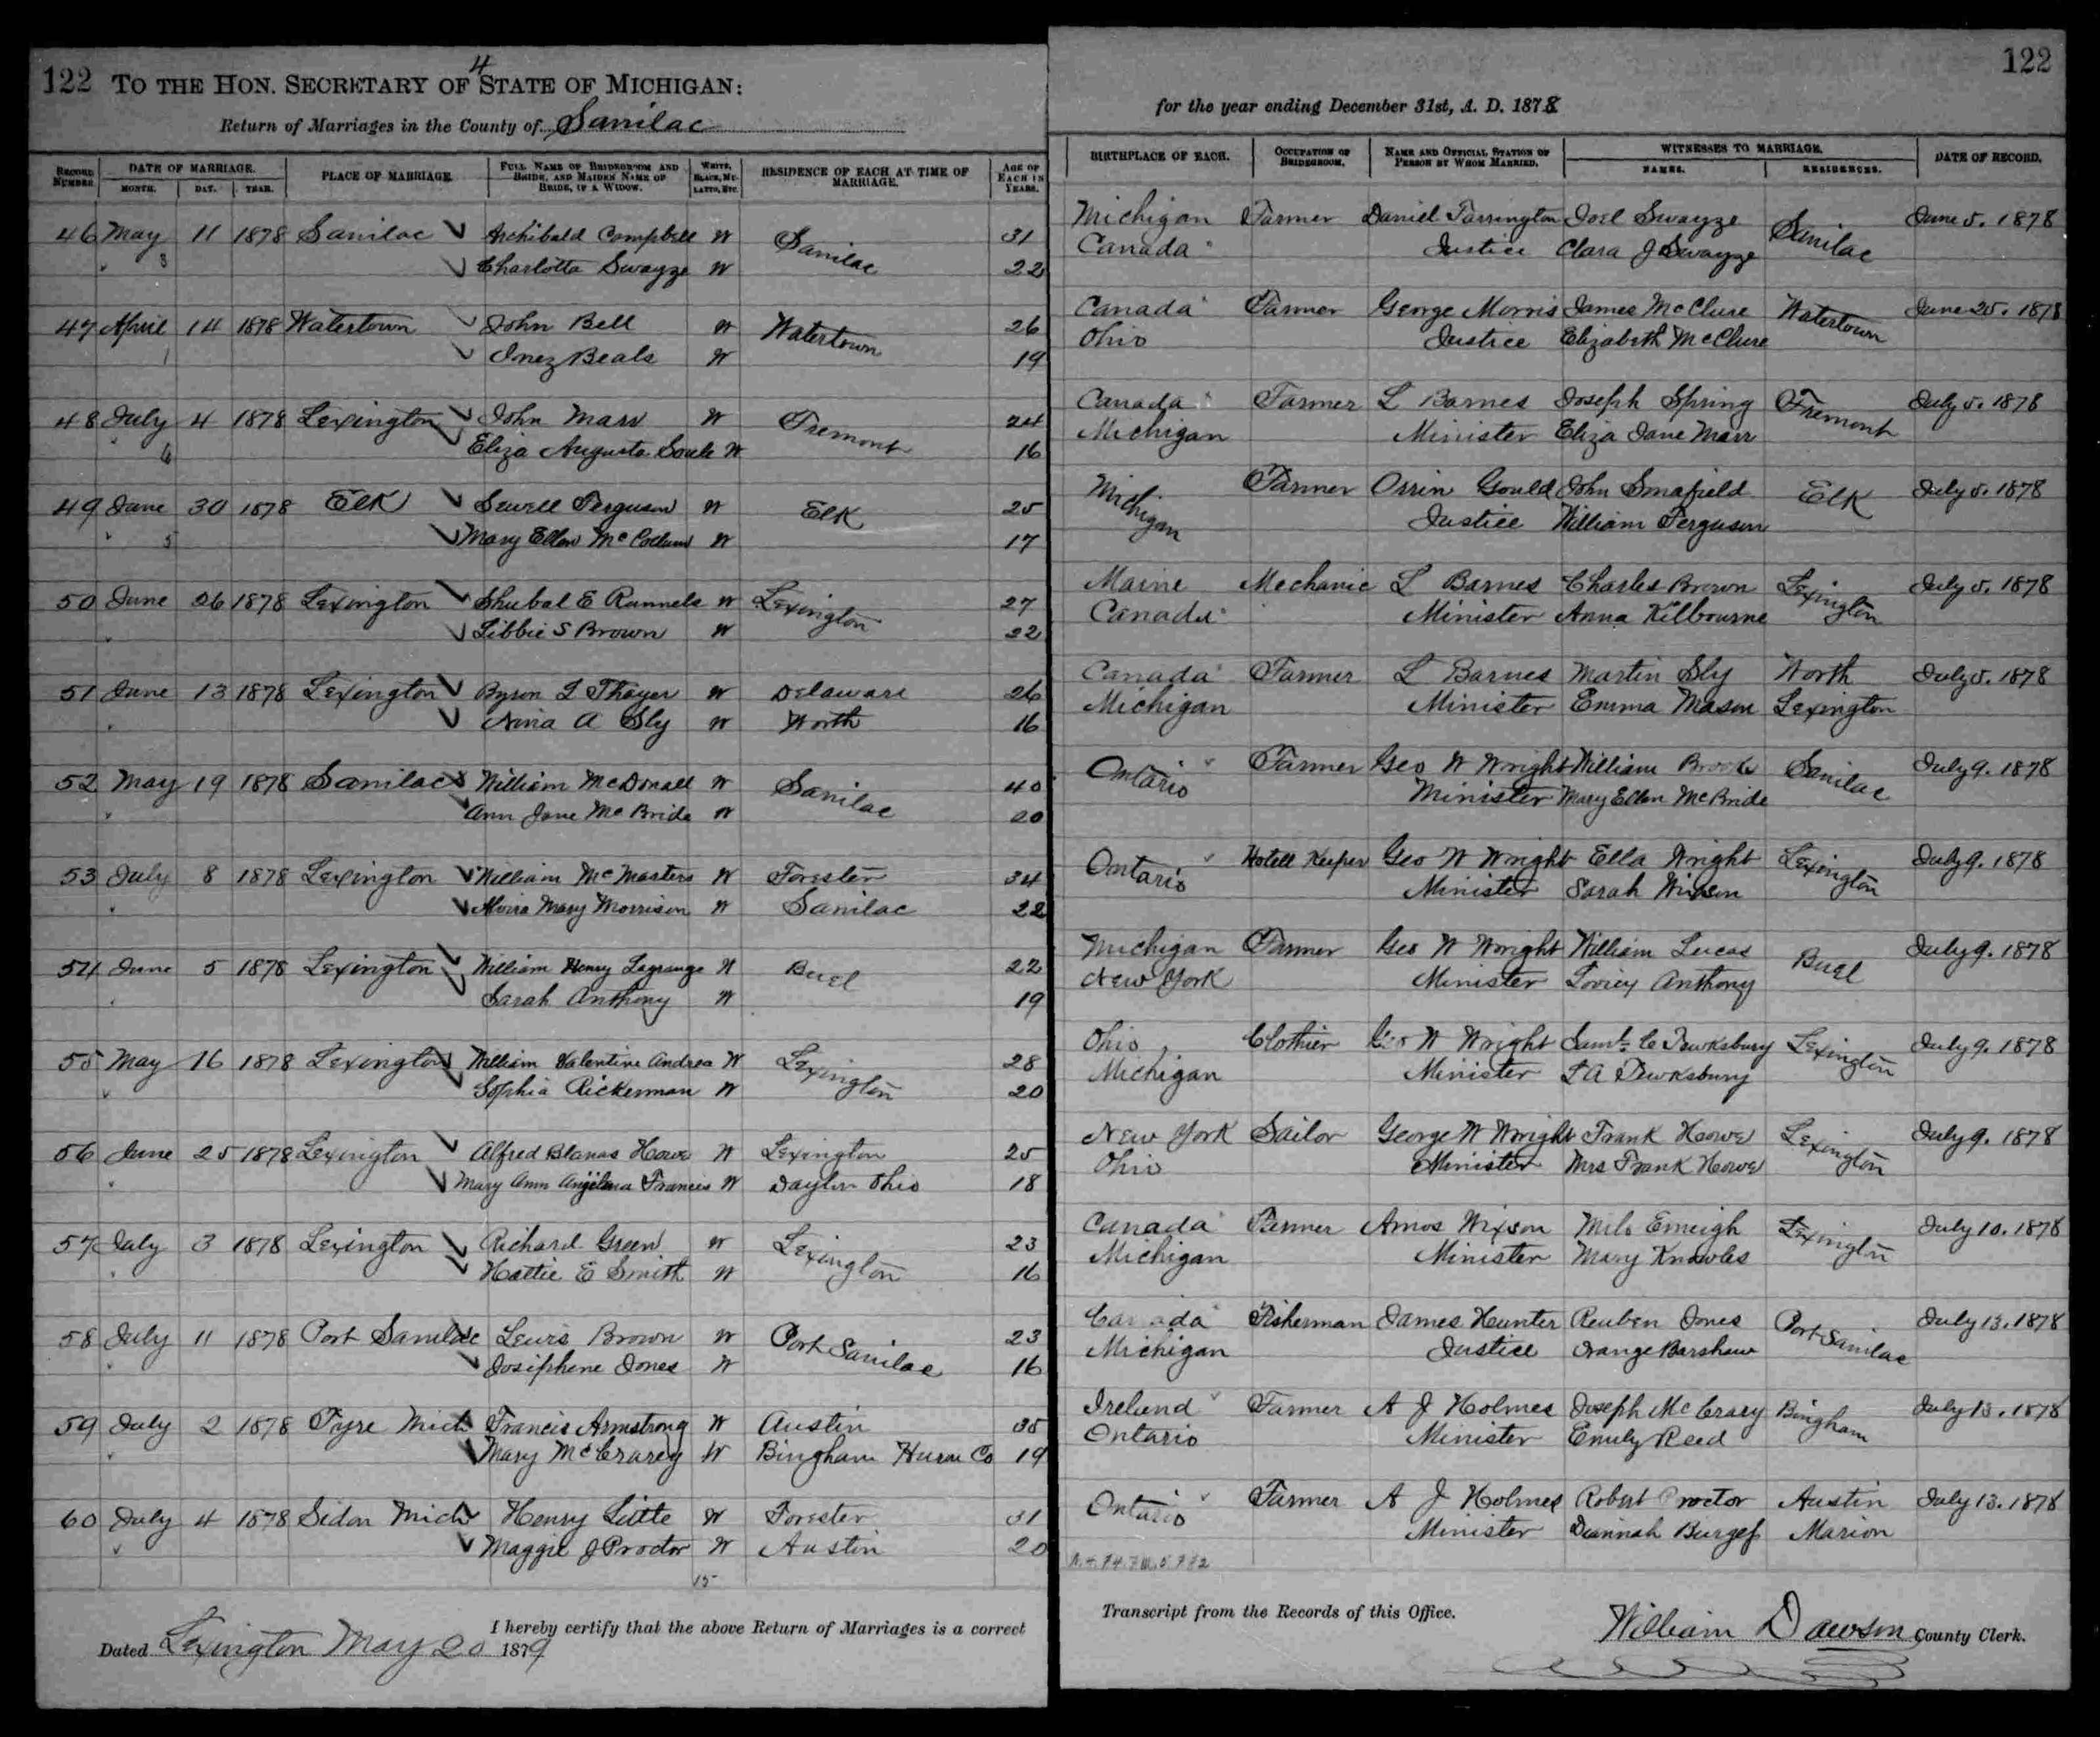 122 TO THE HON. SECRETARY OF STATE OF MICHIGAN:
4
Return of Marriages in the County of Sanilac
RECORD NUMBER. DATE OF MARRIAGE. MONTH. DAY. YEAR. PLACE OF MARRIAGE. FULL NAME OF BRIDEGROOM AND BRIDE, AND MAIDEN NAME OF BRIDE, IF A WIDOW. WHITE, BLACK, MULATTO, ETC. RESIDENCE OF EACH AT TIME OF MARRIAGE. AGE OF EACH IN YEARS.
46 May 11 1878 Sanilac Archibald Campbell W Sanilac 31
" 3 Charlotta Swayze W 22
47 April 14 1878 Watertown John Bell W Watertown 26
1 Inez Beals W 19
48 July 4 1878 Lexington John Marr W Fremont 24
" 6 Eliza Augusta Soule W 16
49 June 30 1878 Elk Sewell Ferguson W Elk 25
" 5 Mary Ellen McCollum W 17
50 June 26 1878 Lexington Shubal E Runnels W Lexington 27
" Libbie S Brown W 22
51 June 13 1878 Lexington Byron L Thayer W Delaware 26
" A Sly W Worth 16
52 May 19 1878 Sanilac William McDonall W Sanilac 40
" Ann Jane McBride W 20
53 July 8 1878 Lexington William McMasters W Forester 34
" Mary Morrison W Sanilac 22
54 June 5 1878 Lexington William Henry Lagrange W Buel 22
" Sarah Anthony W 19
55 May 16 1878 Lexington William Valentine Andrea W Lexington 28
" Sophia Rickerman W 20
56 June 25 1878 Lexington Alfred Howe W Lexington 25
" Mary Ann Angelina Francis W Dayton Ohio 18
57 July 3 1878 Lexington Richard Green W Lexington 23
" Hattie E Smith W 16
58 July 11 1878 Port Sanilac Lewis Brown W Port Sanilac 23
" Josephene Jones W 16
59 July 2 1878 Tyre Mich Francis Armstrong W Austin 35
" Mary McCrarey W Bingham Huron Co 19
60 July 4 1878 Sidon Mich Henry Little W Forester 31
" Maggie J Proctor W Austin 20
15
I hereby certify that the above Return of Marriages is a correct
Dated Lexington May 20 1879
122
for the year ending December 31st, A. D. 1878
BIRTHPLACE OF EACH. OCCUPATION OF BRIDEGROOM. NAME AND OFFICIAL STATION OF PERSON BY WHOM MARRIED. WITNESSES TO MARRIAGE. NAMES. RESIDENCES. DATE OF RECORD.
Michigan Farmer Daniel Tarrington Joel Swayze Sanilac June 5. 1878
Canada Justice Clara J Swayze
Canada Farmer George Morris James McClure Watertown June 25. 1878
Ohio Justice Elizabeth McClure
Canada Farmer L Barnes Joseph Spring Fremont July 5. 1878
Michigan Minister Eliza Jane Marr
Michigan Farmer Orrin Gould John Smafield Elk July 5. 1878
Justice William Ferguson
Maine Mechanic L Barnes Charles Brown Lexington July 5. 1878
Canada Minister Anna Kilbourne
Canada Farmer L Barnes Martin Sly Worth July 5. 1878
Michigan Minister Emma Mason Lexington
Ontario Farmer Geo W Wright William Brooks Sanilac July 9. 1878
Minister Mary Ellen McBride
Ontario Hotell Keeper Geo W Wright Ella Wright Lexington July 9. 1878
Minister Sarah Wixson
Michigan Farmer Geo W Wright William Lucas Buel July 9. 1878
New York Minister Anthony
Ohio Clothier Geo W Wright Saml. C Tewksbury Lexington July 9. 1878
Michigan Minister L A Tewksbury
New York Sailor George W Wright Frank Howe Lexington July 9. 1878
Ohio Minister Mrs Frank Howe
Canada Farmer Amos Wixson Milo Emeigh Lexington July 10. 1878
Michigan Minister Mary Knowles
Canada Fisherman James Hunter Reuben Jones Port Sanilac July 13. 1878
Michigan Justice Orange Barshaw
Ireland Farmer A J Holmes Joseph McCrary Bingham July 13. 1878
Ontario Minister Emily Reed
Ontario Farmer A J Holmes Robert Proctor Austin July 13. 1878
Minister Burgess Marion
Transcript from the Records of this Office.
William Dawson County Clerk.